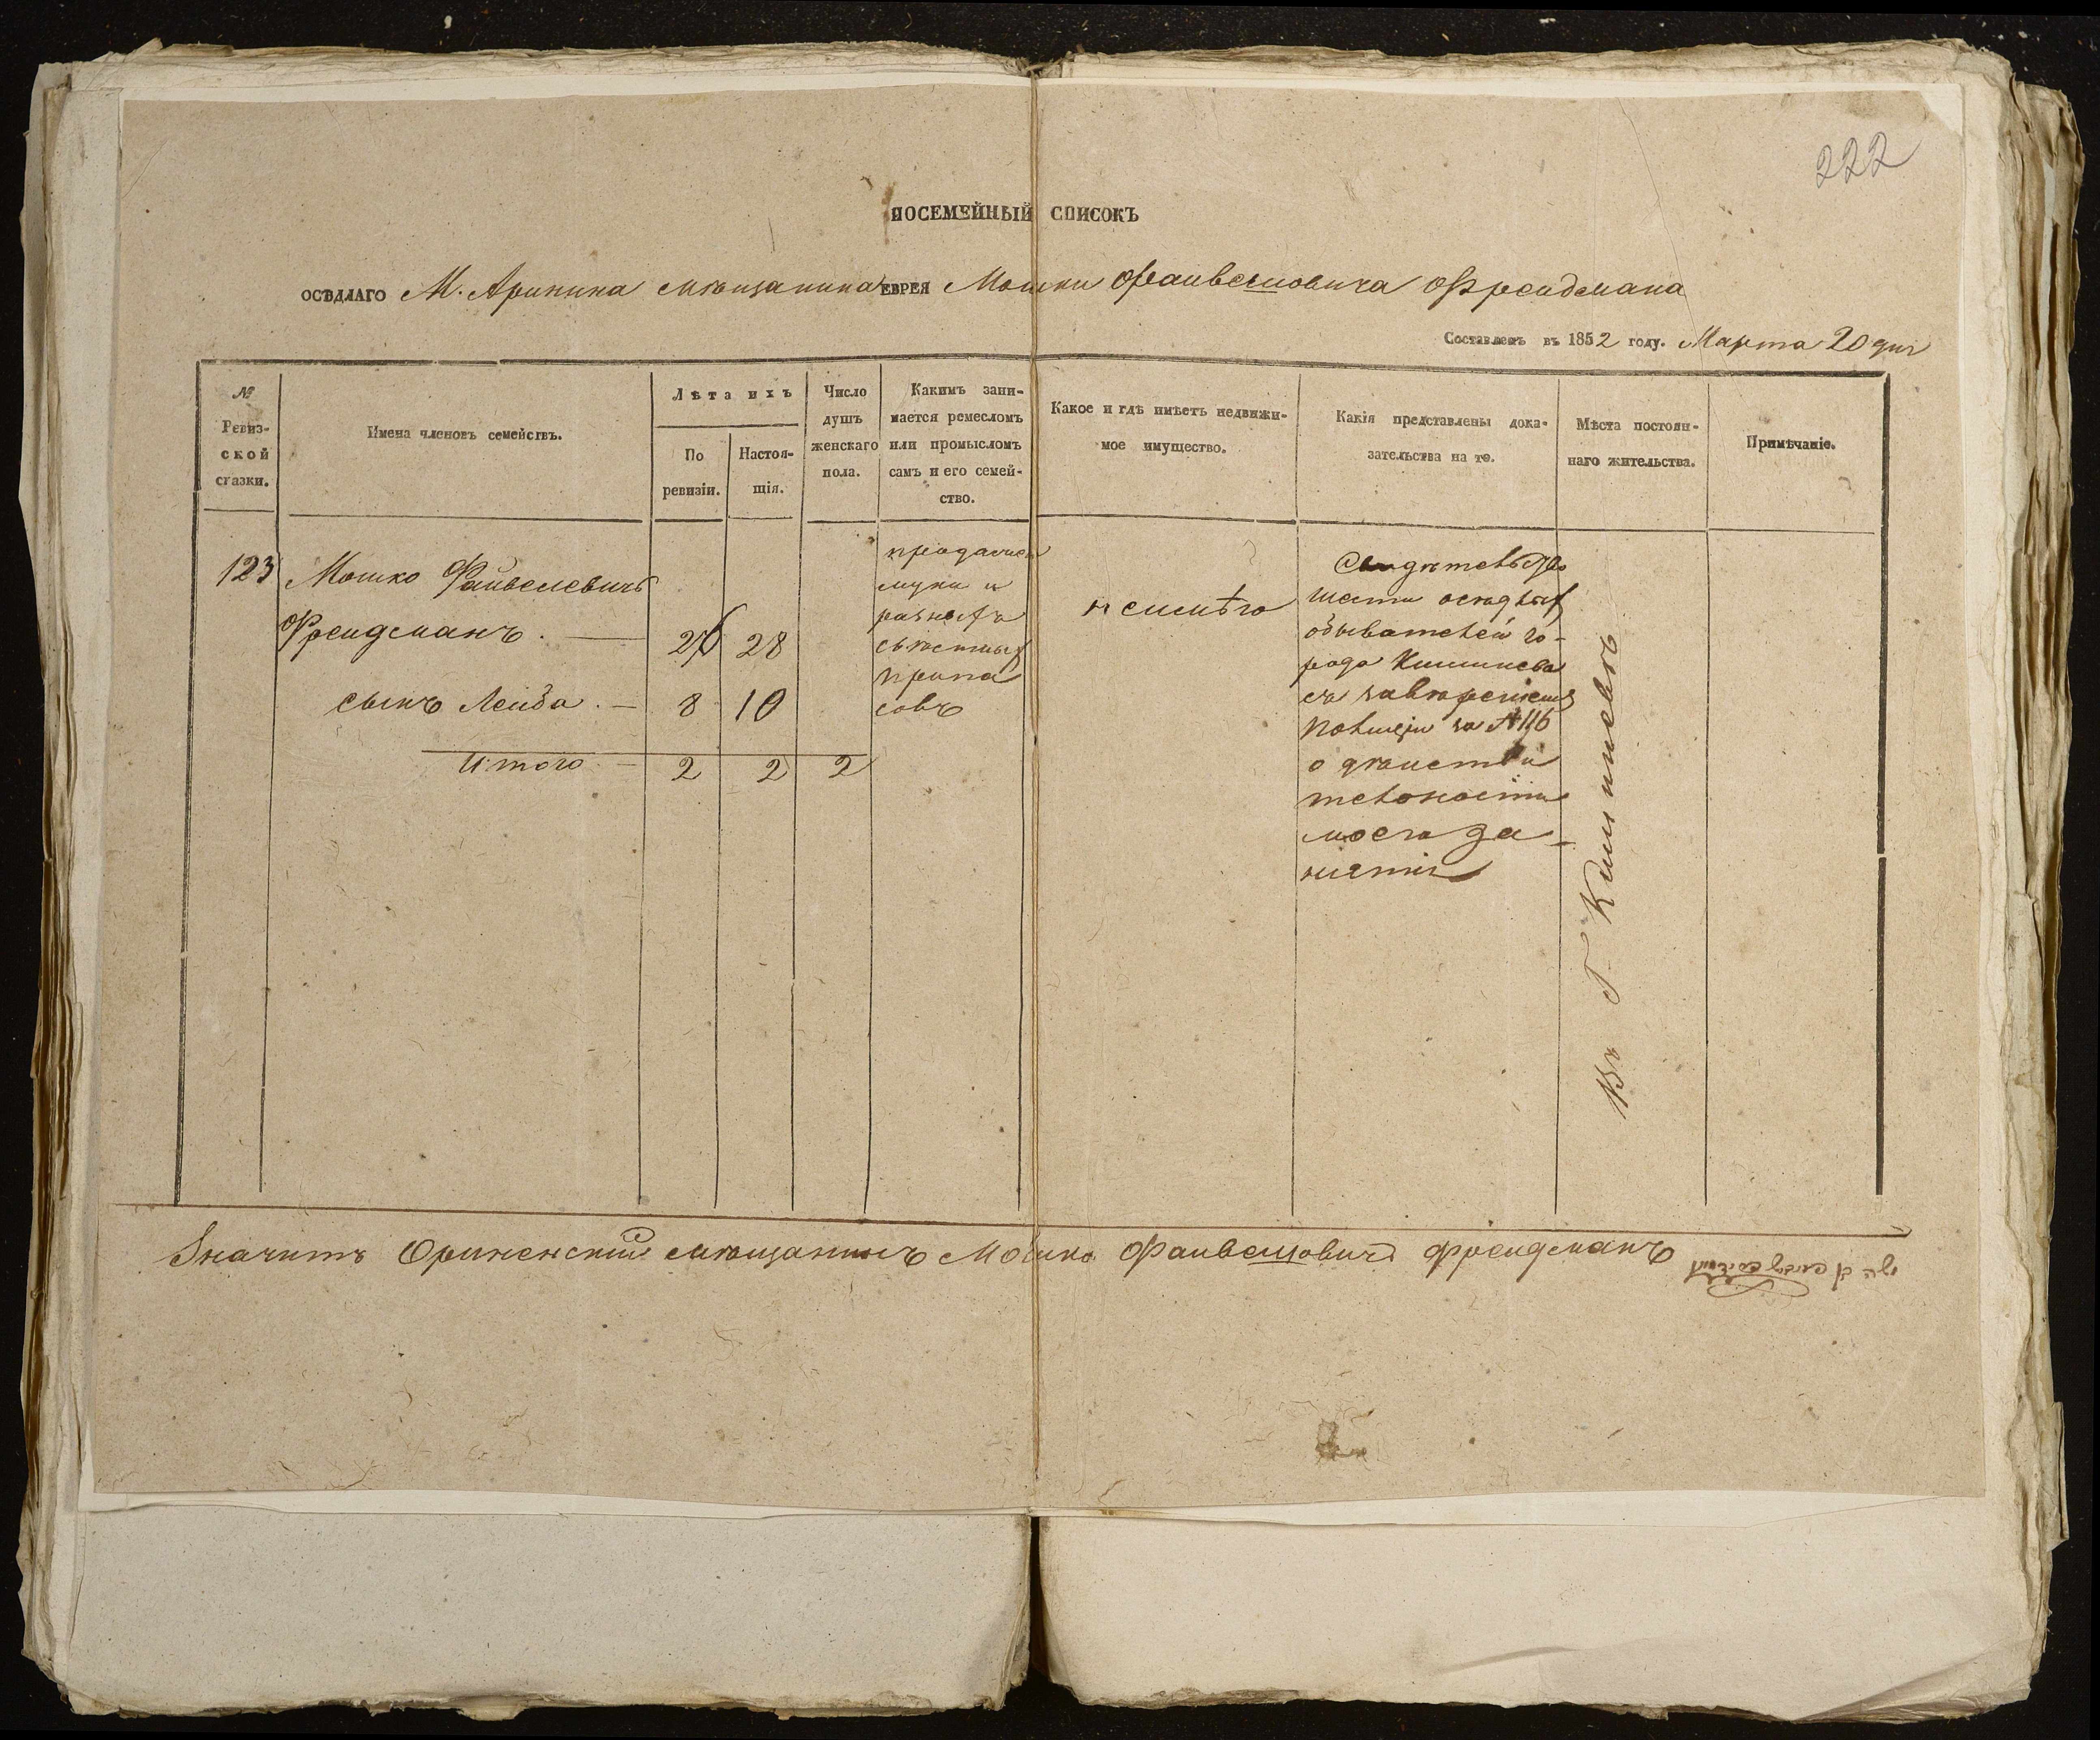 222
ПОСЕМЕЙНЫЙ СПИСОКЪ
ОСѢДЛАГО М. Аринина мѣщанина ЕВРЕЯ Мошки Файвелиовича Фреидмана
Составленъ въ 1852 году. Марта 20 дня
№ Ревизской сказки.
Имена членовъ семействъ.
Лѣта ихъ
По ревизіи.
Настоящія.
Число душъ женскаго пола.
Какимъ занимается ремесломъ или промысломъ самъ и его семейство.
Какое и гдѣ имѣетъ недвижимое имущество.
Какія представлены доказательства на то.
Мѣста постояннаго жительства.
Примѣчаніе.
123 Мошко Файвелевичъ
Фреидманъ. — 26 28
сынъ Лейба. — 8 10
Итого — 2 2 2
продажею
муки и
разныхъ
съѣстныхъ
припа
совъ
неимѣю
Свидѣтельство
шести осѣдлыхъ
обывателей го-
рода Кишинева
съ завѣреніемъ
Полиціи за №116
о дѣйстви
тельности
моего за-
нятія
Въ Г. Кишиневѣ
Значитъ Орининскій мѣщанинъ Мошко Файвелиовичъ Фреидманъ